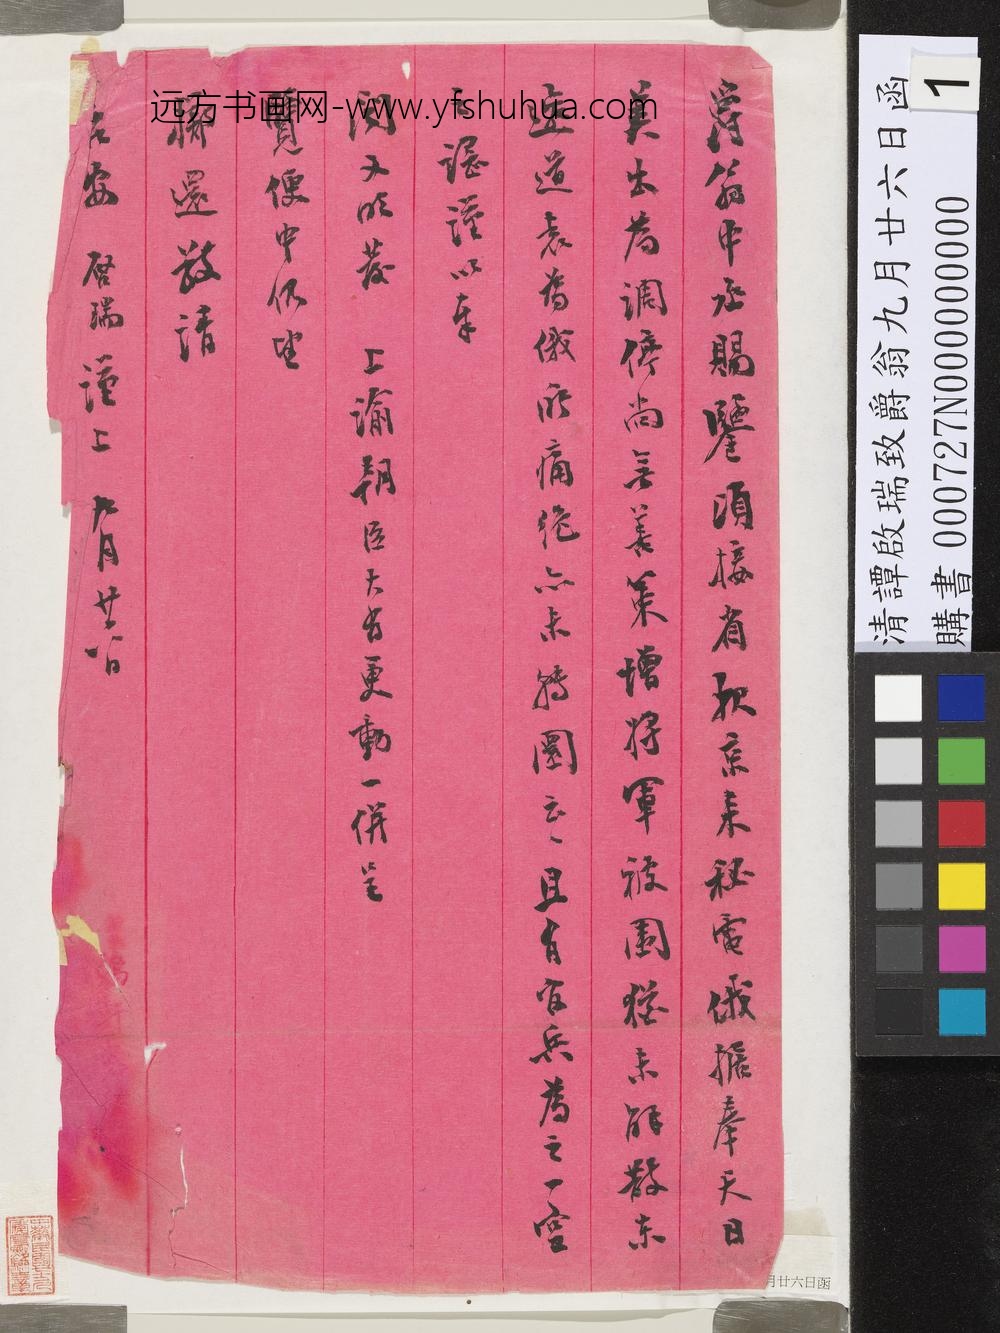 爵翁中丞賜鑒頃接省臥京來秘電俄據奉天日
英出為調停尚無善策增將軍被圍猶未解散東
邊道袁為俄所痛絕亦未轉圜云云且有官兵為之一空
謹以奉
閱又昨發 上諭朝臣大有更動一併呈
覽便中仍望
擲還敬請
台安 啓瑞謹上 九月廿六日
远方书画网-www.yfshuhua.com
清譚啟瑞致爵翁九月廿六日函
購書 000727N000000000
1
月廿六日函